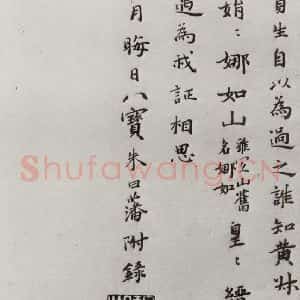 自生自以為過之誰知黃牀
娟〻娜如山
雅久山舊
名娜如
皇〻繼
過為我証相思
月晦日八寶朱曰藩附錄
Shufawang.CN